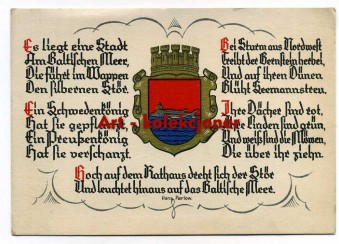 Es liegt eine Stadt
Am Baltischen Meer,
Die führt im Wappen
Den silbernen Stör.
Ein Schwedenkönig
Hat sie gepflanzt,
Ein Preußenkönig
Hat sie verschanzt.
Bei Sturm aus Nordwest
Treibt der Bernstein herbei,
Und auf ihren Dünen
Blüht Seemannstreu.
Ihre Dächer sind rot,
Ihre Linden sind grün,
Und weiß sind die Möwen,
Die über ihr ziehn.
Art - kolekcjoner
Hoch auf dem Rathaus dreht sich der Stör
Und leuchtet hinaus auf das Baltische Meer.
Hans Parlow.